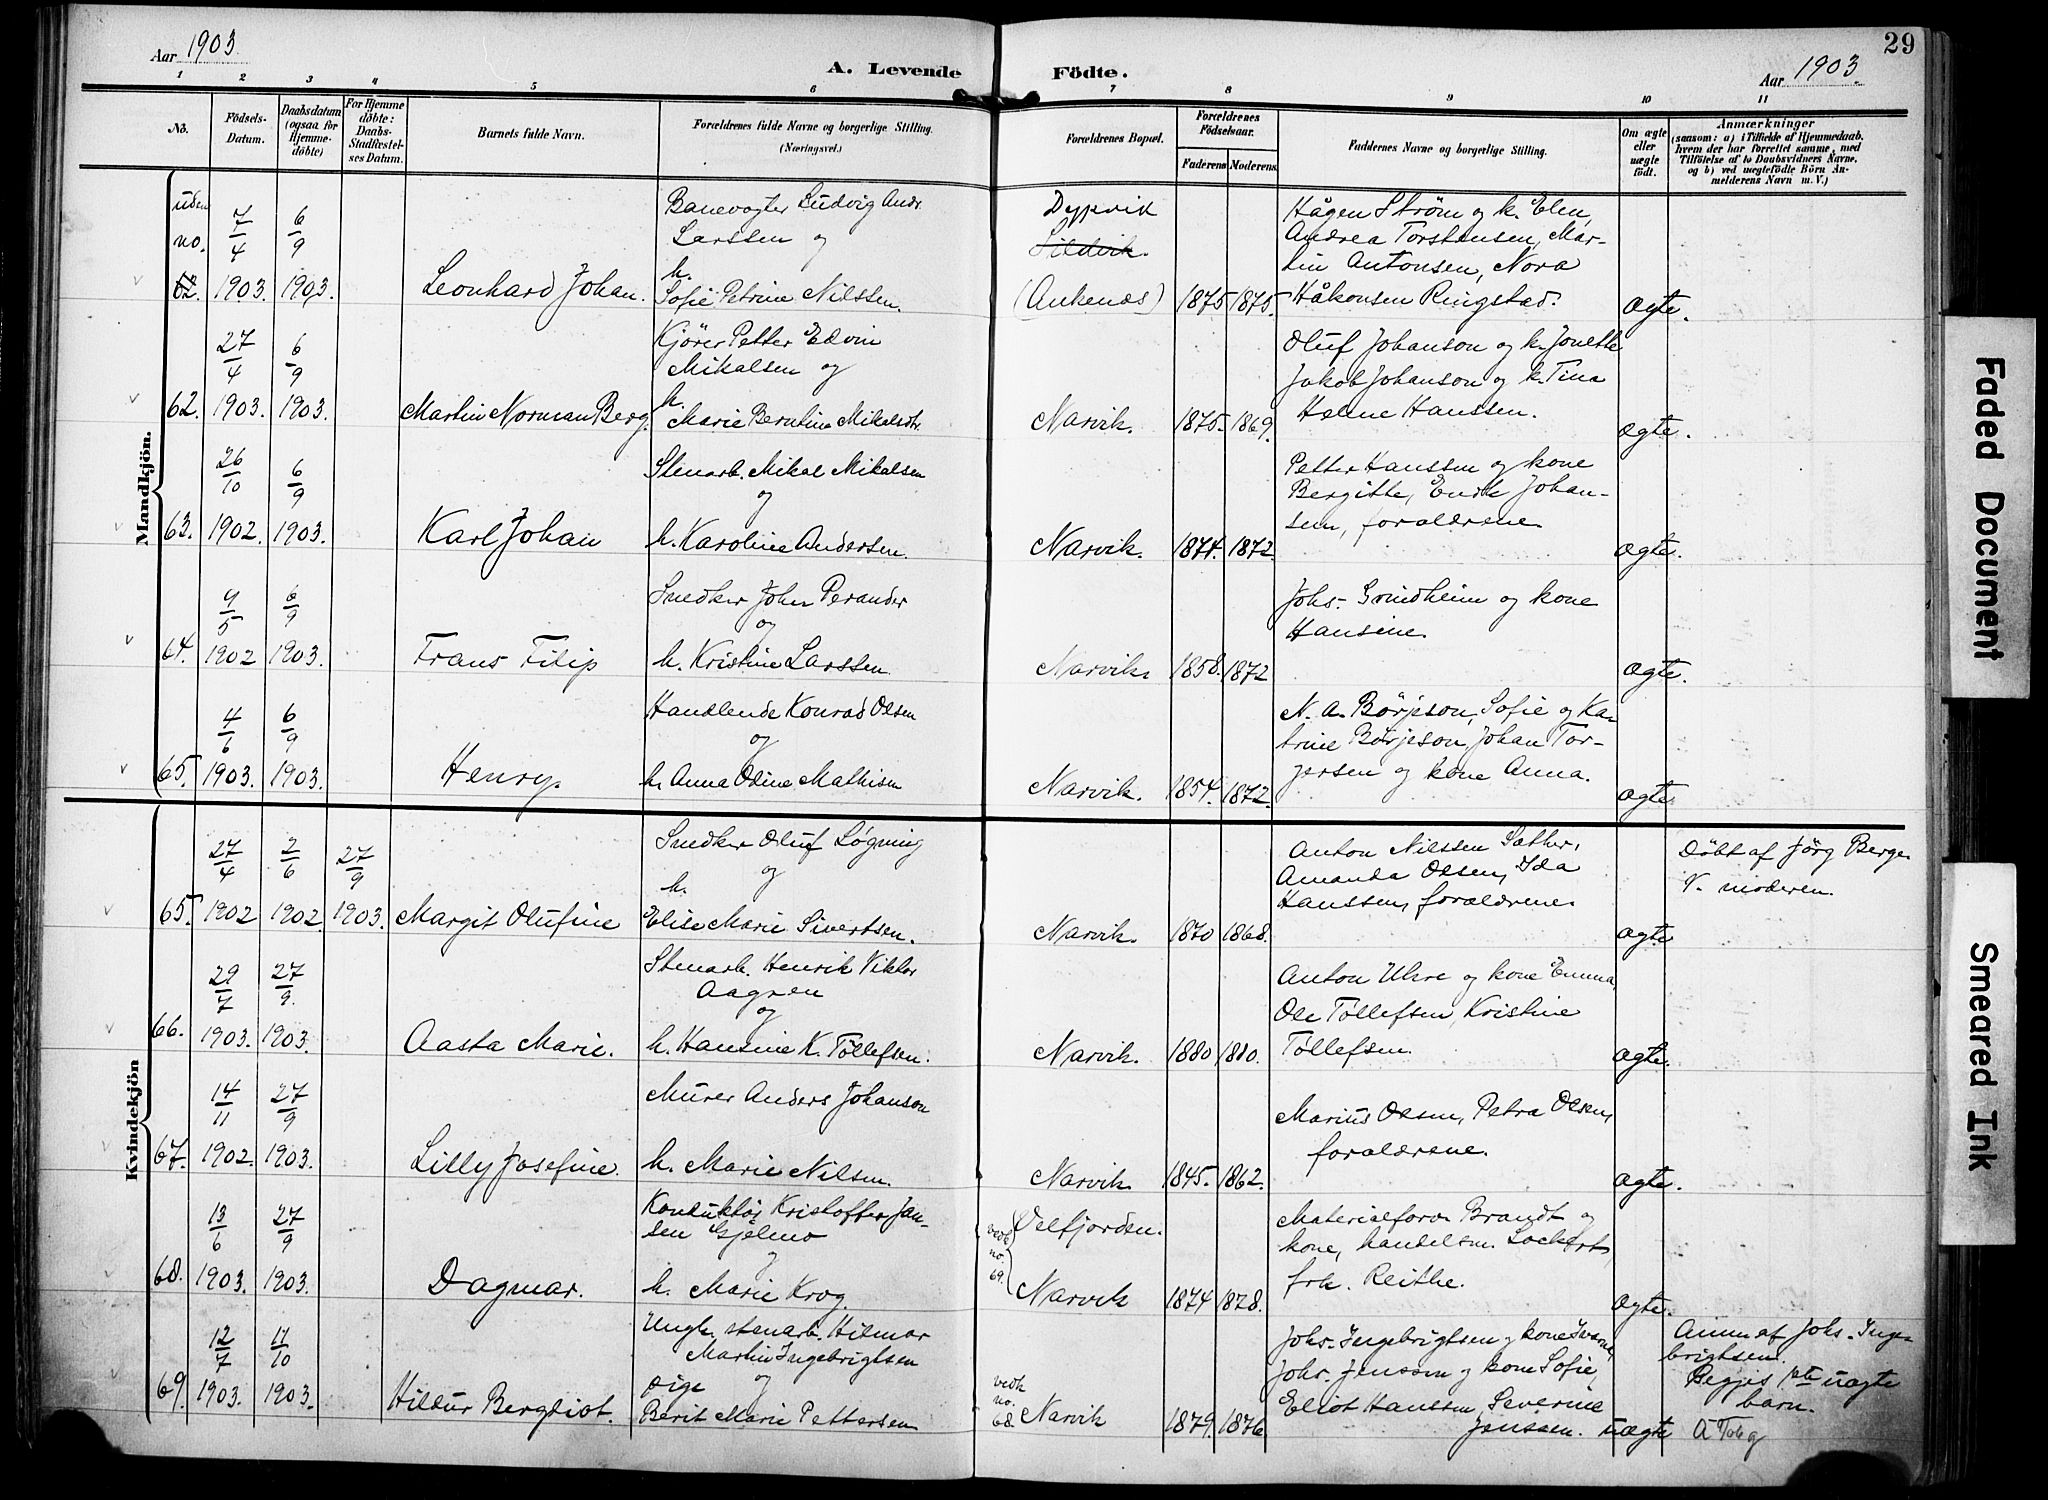 Aar 1903.
A. Levende Födte.
Aar 1903.
29
1 2 3 4 5 6 7 8 9 10 11
No.
Födsels-Datum.
Daabsdatum (ogsaa for Hjemme-döbte)
For Hjemme döbte: Daabs-Stadfæstel-ses Datum.
Barnets fulde Navn.
Forældrenes fulde Navne og borgerlige Stilling. (Næringsvei.)
Forældrenes Bopæl.
Forældrenes Födselsaar.
Faderens Moderens
Faddernes Navne og borgerlige Stilling.
Om ægte eller uægte födt.
Anmærkninger
(saasom: a) i Tilfælde af Hjemmedaab,
hvem der har forrettet samme, med
Tilföielse af to Daabsvidners Navne,
og b) ved uægtefödte Börn An-
melderens Navn m. V.)
Mandkjön.
uden no. 62. 7/4 1903. 6/9 1903. Leonhard Johan.
Banevogter Ludvig Andr.
Larssen og
h.
Sofie Petrine Nilssen.
Dypvik
Sildvik.
(Ankenæs) 1875 1875.
Hågen Strøm og k. Elen,
Andrea Torstensen, Mar-
tin Antonsen, Nora
Håkonsen Ringstad.
ægte.
62. 27/4 1903. 6/9 1903. Martin Norman Berg.
Kjører Petter Edvin
Mikalsen og
h.
Marie Berntine Mikalsdtr.
Narvik. 1875. 1869.
Oluf Johanson og k. Jonette
Jakob Johanson og k. Tina
Helene Hanssen.
ægte.
63. 26/10 1902. 6/9 1903. Karl Johan
Stenarb. Mikal Mikalsen
og
h. Karoline Andersen.
Narvik. 1874. 1872.
Petter Hanssen og kone
Bergitte, Enok Johan-
sen, forældrene
ægte.
64. 9/5 1902 6/9 1903. Frans Filip
Snedker John Perander
og
h. Kristine Larssen.
Narvik. 1858. 1872
Johs. Grindheim og kone
Hansine.
ægte.
65. 4/6 1903. 6/9 1903. Henry.
Handlende Konrad Olsen
og
h. Anna Odine Mathisen
Narvik. 1854. 1872.
N. A. Börjeson, Sofie og Ka-
trine Börjeson, Johan Tor-
jersen og kone Anna.
ægte.
Kvindekjön
65. 27/4 1902 2/6 1902. 27/9 1903. Margit Olufine
Snedker Oluf Løgning
og
h.
Elise Marie Sivertsen.
Narvik. 1870 1868.
Anton Nilssen Sæther,
Amanda Olsen, Ida
Hanssen, forældrene.
ægte
Döbt af Jörg Berge.
V. moderen.
66. 29/7 1903. 27/9 1903. Aasta Marie.
Stenarb. Henrik Viktor
Aagren
og
h. Hansine K. Töllefsen.
Narvik. 1880 1880.
Anton Uhre og kone Emma,
Ole Töllefsen, Kristine
Töllefsen.
ægte.
67. 14/11 1902. 27/9 1903. Lilly Josefine.
Murer Anders Johanson
h. Marie Nilsen.
Narvik. 1845. 1862.
Marius Olsen, Petra Olsen,
forældrene.
ægte.
68. 13/6 1903. 27/9 1903. Dagmar.
Konduktör Kristoffer Jan-
sen Gjelmo
og
h. Marie Krog.
(vedk no. 69.
Velfjorden.
Narvik 1874 1878.
Materialforv. Brandt og
kone, handelsm. Lockert,
frk. Reithe.
ægte.
69. 12/7 1903. 11/10 1903. Hildur Bergliot.
Ungk. stenarb. Hilmar
Martin Ingebrigtsen
pige og
Berit Marie Pettersen
vedk no. 68
Narvik 1879. 1876.
Johs. Ingebrigtsen og kone Ivarna,
Johs. Jenssen og kone Sofie,
Eliot Hanssen, Severine
Jenssen.
uægte
Anm. af Johs. Inge-
brigtsen.
Begges 1ste uægte
barn.
Faded Document
Smeared Ink